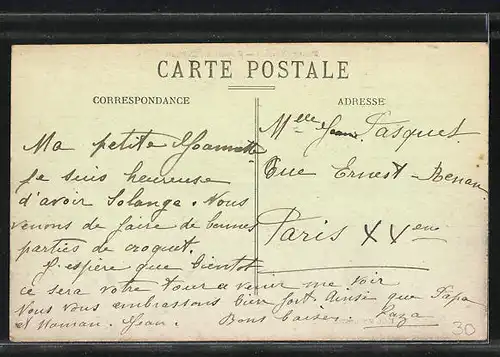 CARTE POSTALE
CORRESPONDANCE
ADRESSE
Ma petite
je suis heureuse
d'avoir Solange. Nous
venons de faire de bonnes
parties de croquet.
J'espère que bientôt
ce sera votre tour a venir me voir
Nous vous embrassons bien fort ainsi que Papa
et Maman. Jean. Bons baisers.
Melle Pasquet.
Rue Ernest-Renan.
Paris XVeme
30